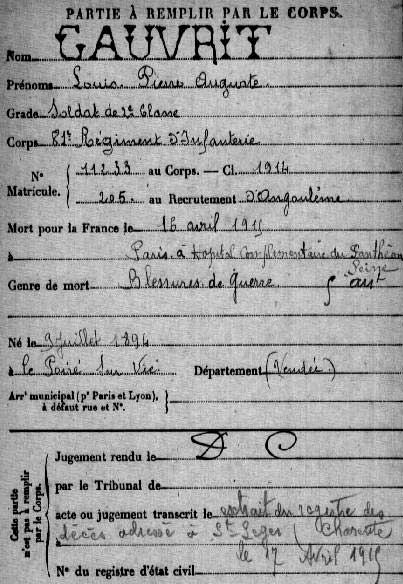 PARTIE À REMPLIR PAR LE CORPS.
Nom GAUVRIT
Prénoms Louis Pierre Auguste
Grade Soldat de 2e Classe
Corps 81e Régiment d'Infanterie
N° Matricule. { 11233 au Corps. — Cl. 1914
205 au Recrutement d'Angoulême
Mort pour la France le 16 avril 1915
à Paris à Hopital Complémentaire du Panthéon
Seine
Genre de mort Blessures de Guerre
Né le 9 juillet 1894
à le Poiré sur Vie Département (Vendée)
Arrt municipal (pr Paris et Lyon),
à défaut rue et N°.
D C
Cette partie n'est pas à remplir par le Corps.
Jugement rendu le
par le Tribunal de
acte ou jugement transcrit le extrait du registre des
décès adressé à St Leger Charente
le 17 Avril 1915
N° du registre d'état civil